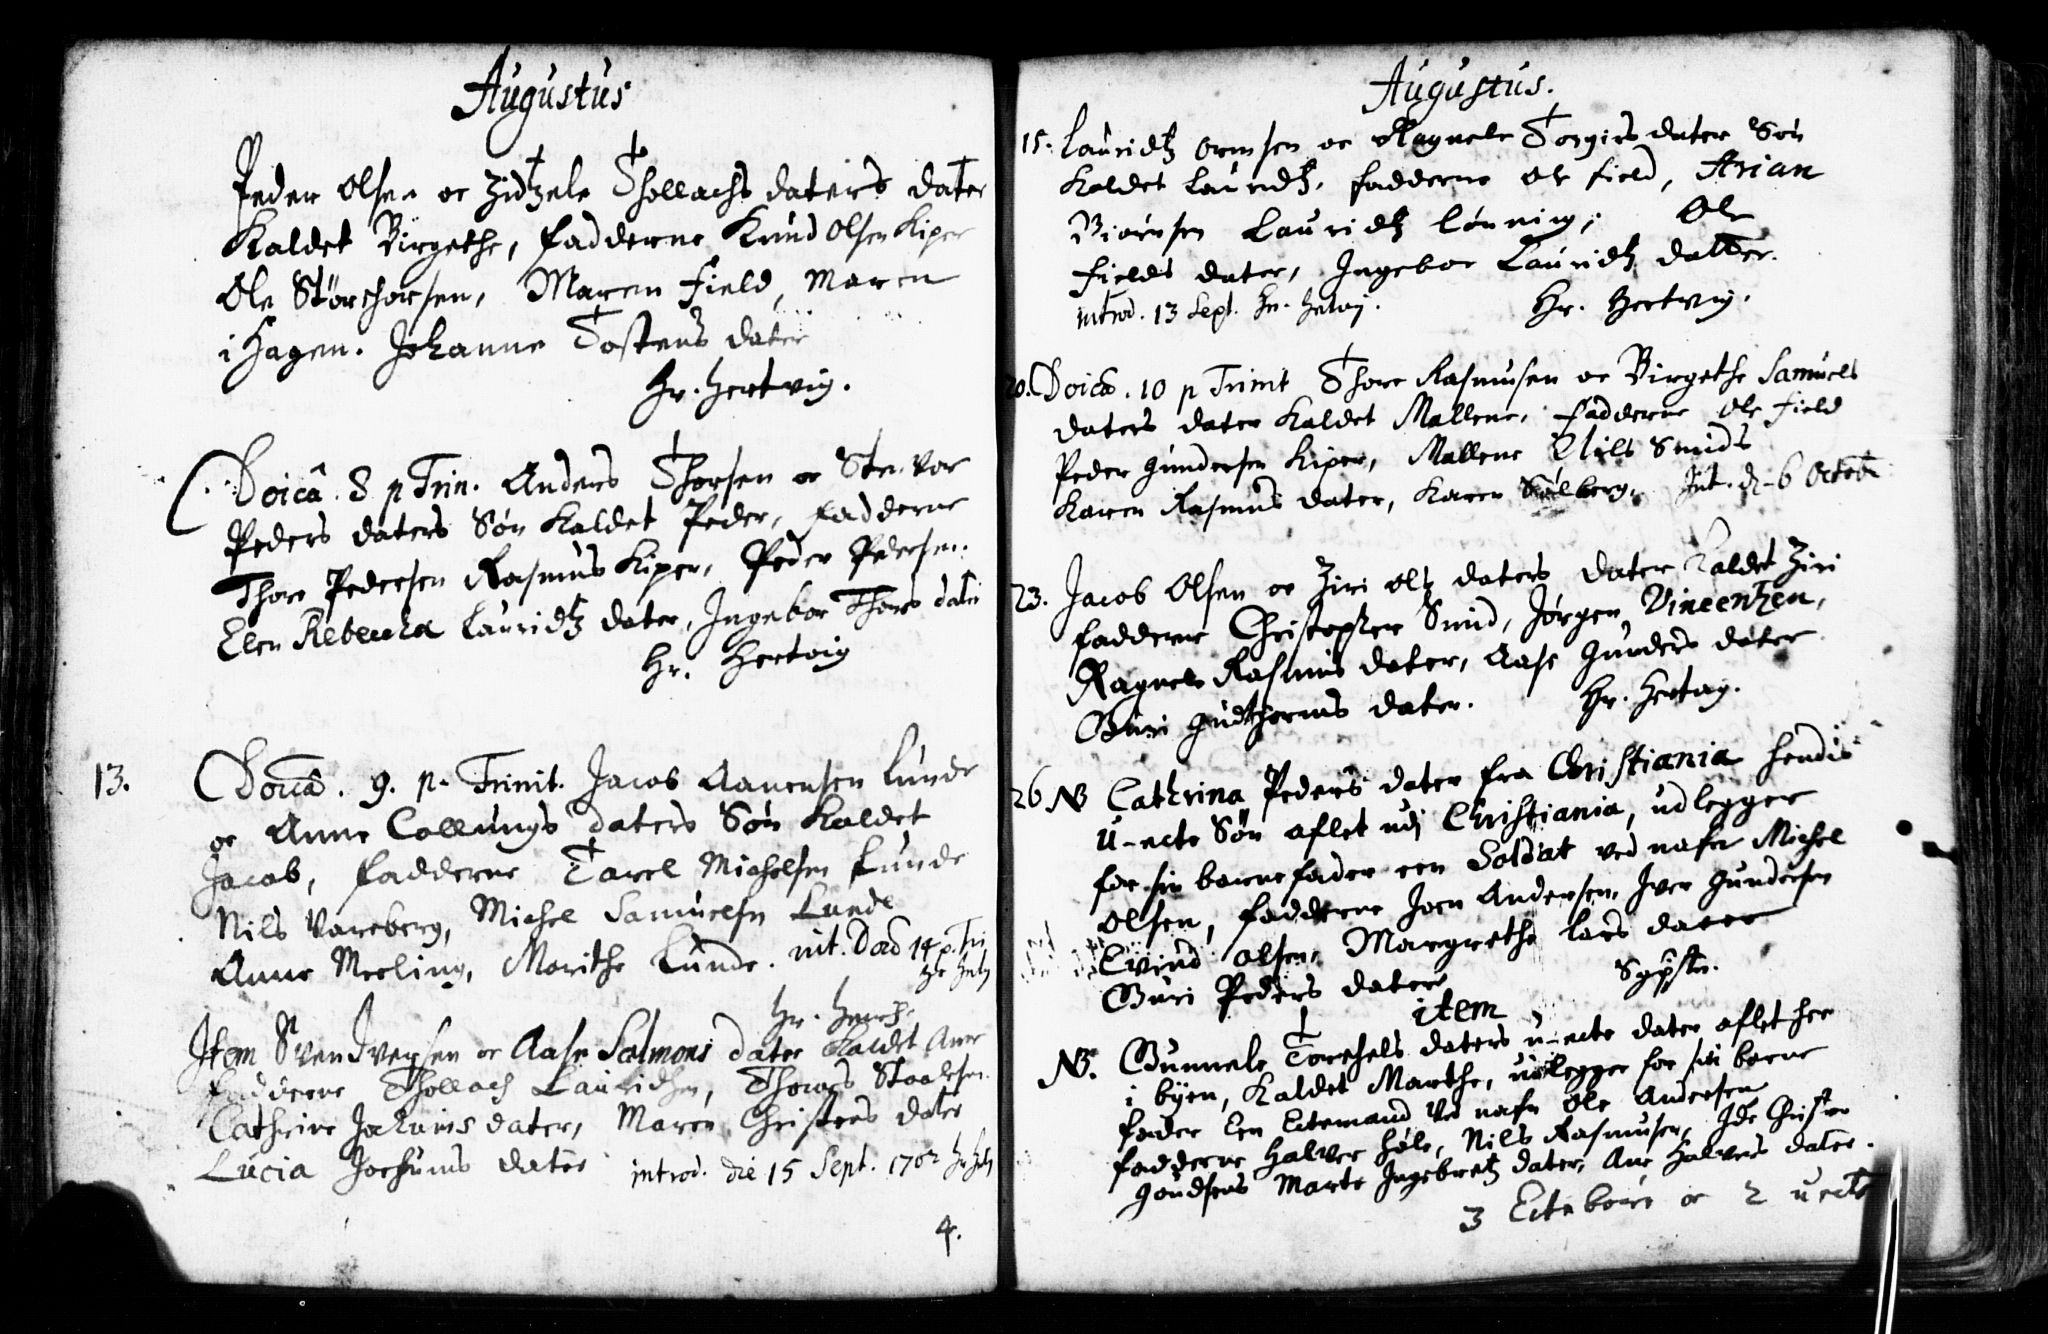 Augustus
Peder Olsen oc Zidtzele Thollachs daters dater
Kaldet Birgethe, fadderne Knud Olsen Kiper
Ole Størchorsen, Maren Field, Maren
i Hagen. Johanne Tostens dater
Hr. Hertvig.
Doîca. 8 p Trin. Anders Thorsen oc Stenvor
Peders daters Søn Kaldet Peder, fadderne
Thore Pedersen Rasmus Kiper, Peder Pedersen.
Elen Rebecka Lauridtz dater, Ingebor Thores dater
Hr. Hertvig
13. Doîca. 9. p. Trinit. Jacob Aanensen Lunde
oc Anne Collungs daters Søn Kaldet
Jacob, fadderne Tarel Michelsen Lunde
Nils Vareberg, Michel Samuelsn Lunde
Anne Meeling, Morithe Lunde. int. Dod 14 p. Tri
Hr.
Item Svend oc Aase Salmons dater Kaldet Ane
fadderne Thollach Lauridsen, Thomes Staalesen.
Cathrine Jochums dater, Maren Christens dater
Lucia Jochums dater introd. die 15 Sept. 1702
4.
Augustus.
15. Lauridtz Ormsen oc Ragnele Torgirs dater Søn
Kaldet Lauridtz, fadderne Ole field, Arian
Biørnsen Lauridtz Lønning, Ole
fields dater, Ingebor Lauridtz datter.
introd. 13 Sept. Hr. Hr. Hertvig.
20. Doîca. 10 p Trinit Thore Rasmusen oc Birgethe Samuels
daters dater Kaldet Mallene, fadderne Ole field
Peder Gundersen Kiper, Mallene Nils Smids
Karen Rasmus dater, Karen Sølberg. Int. d. 6 Octob
23. Jacob Olsen oc Ziri Oltz daters dater Kaldet Ziri
fadderne Christopher Smid, Jørgen Vincentzen,
Ragnele Rasmus dater, Aase Gunders dater
Guri Gudthorms dater. Hr. Hertvig.
26 NB Cathrina Peders dater fra Christiania hendis
U-ecte Søn aflet udj Christiania, udlegger
for sin barnefader een Soldat ved nafn Michel
Olsen, fadderne Joen Andersen, Iver Gundersen
Evind Olsen, Margrethe Lars dater
Guri Peders dater
item
NB. Gunnele Torchels daters u-ecte dater aflet her
i byen, Kaldet Marthe, udlegger for sin barne
fader Een Ectemand ved nafn Ole Andersen
fadderne Halver Høle, Nils Rasmusen, Ide Christen
Goudsens Marte Ingebretz dater, Ane Halvers dater.
3 Ecte børn oc 2 uecte